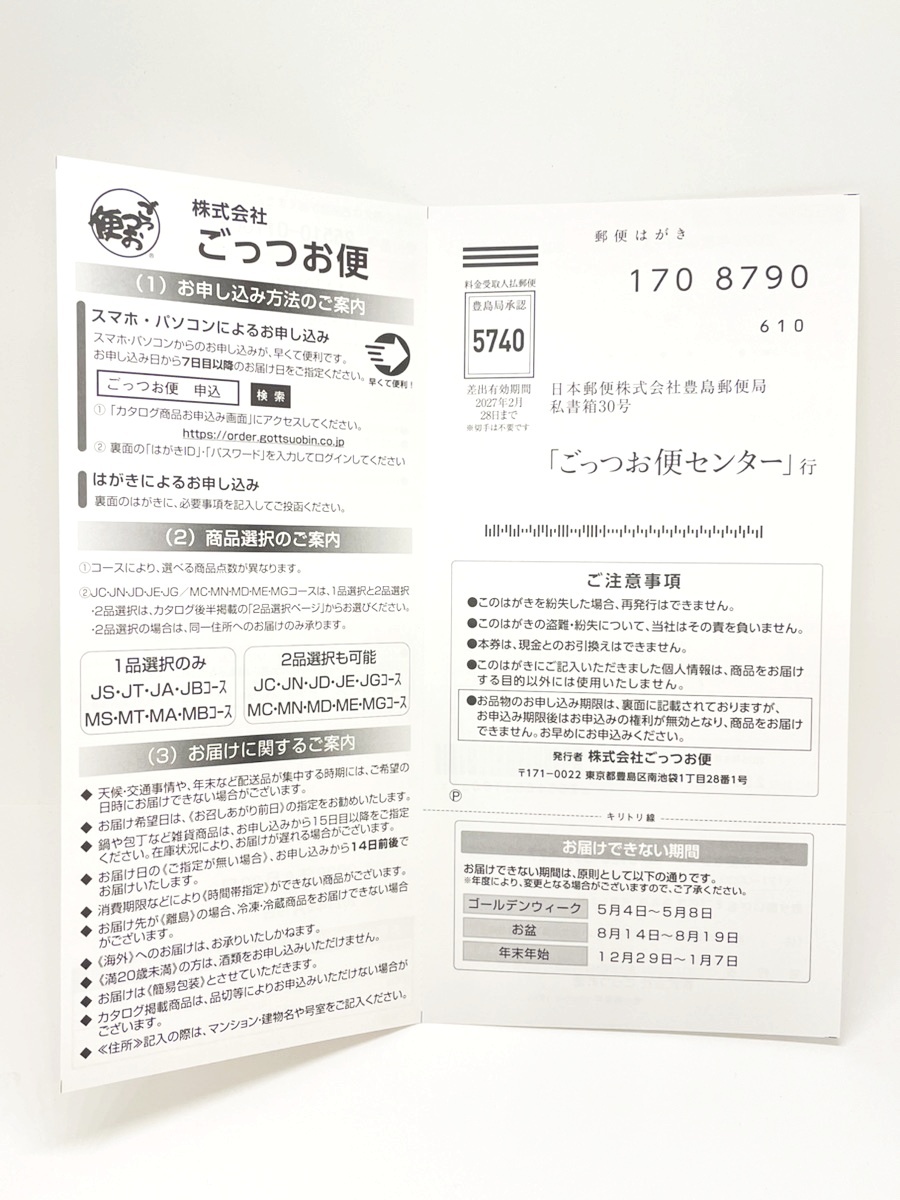 ごっつお便
株式会社
ごっつお便
(1) お申し込み方法のご案内
スマホ・パソコンによるお申し込み
スマホ・パソコンからのお申し込みが、早くて便利です。
お申し込み日から7日目以降のお届け日をご指定ください。
早くて便利!
ごっつお便 申込 検索
①「カタログ商品お申込み画面」にアクセスしてください。
https://order.gottsuobin.co.jp
② 裏面の「はがきID」・「パスワード」を入力してログインしてください
はがきによるお申し込み
裏面のはがきに、必要事項を記入してご投函ください。
(2) 商品選択のご案内
①コースにより、選べる商品点数が異なります。
②JC・JN・JD・JE・JG/MC・MN・MD・ME・MGコースは、1品選択と2品選択
・2品選択は、カタログ後半掲載の「2品選択ページ」からお選びください。
・2品選択の場合は、同一住所へのお届けのみ承ります。
1品選択のみ
JS・JT・JA・JBコース
MS・MT・MA・MBコース
2品選択も可能
JC・JN・JD・JE・JGコース
MC・MN・MD・ME・MGコース
(3) お届けに関するご案内
◆ 天候・交通事情や、年末など配送品が集中する時期には、ご希望の
日時にお届けできない場合がございます。
◆ お届け希望日は、《お召しあがり前日》の指定をお勧めいたします。
◆ 鍋や包丁など雑貨商品は、お申し込みから15日目以降をご指定
ください。在庫状況により、お届けが遅れる場合がございます。
◆ お届け日の《ご指定が無い場合》、お申し込みから14日前後で
お届けいたします。
◆ 消費期限などにより《時間帯指定》ができない商品がございます。
◆ お届け先が《離島》の場合、冷凍・冷蔵商品をお届けできない場合
がございます。
◆ 《海外》へのお届けは、お承りいたしかねます。
◆ 《満20歳未満》の方は、酒類をお申し込みいただけません。
◆ お届けは《簡易包装》とさせていただきます。
◆ カタログ掲載商品は、品切等によりお申込みいただけない場合が
ございます。
◆ ≪住所≫記入の際は、マンション・建物名や号室をご記入ください。
郵便はがき
170 8790
610
料金受取人払郵便
豊島局承認
5740
差出有効期間
2027年2月
28日まで
※切手は不要です
日本郵便株式会社豊島郵便局
私書箱30号
「ごっつお便センター」行
ご注意事項
●このはがきを紛失した場合、再発行はできません。
●このはがきの盗難・紛失について、当社はその責を負いません。
●本券は、現金とのお引換えはできません。
●このはがきにご記入いただきました個人情報は、商品をお届け
する目的以外には使用いたしません。
●お品物のお申し込み期限は、裏面に記載されておりますが、
お申込み期限後はお申込みの権利が無効となり、商品をお届け
できません。お早めにお申込みください。
発行者 株式会社ごっつお便
〒171-0022 東京都豊島区南池袋1丁目28番1号
Ⓟ
キリトリ線
お届けできない期間
お届けできない期間は、原則として以下の通りです。
※年度により、変更となる場合がございますので、ご了承ください。
ゴールデンウィーク 5月4日~5月8日
お盆 8月14日~8月19日
年末年始 12月29日~1月7日